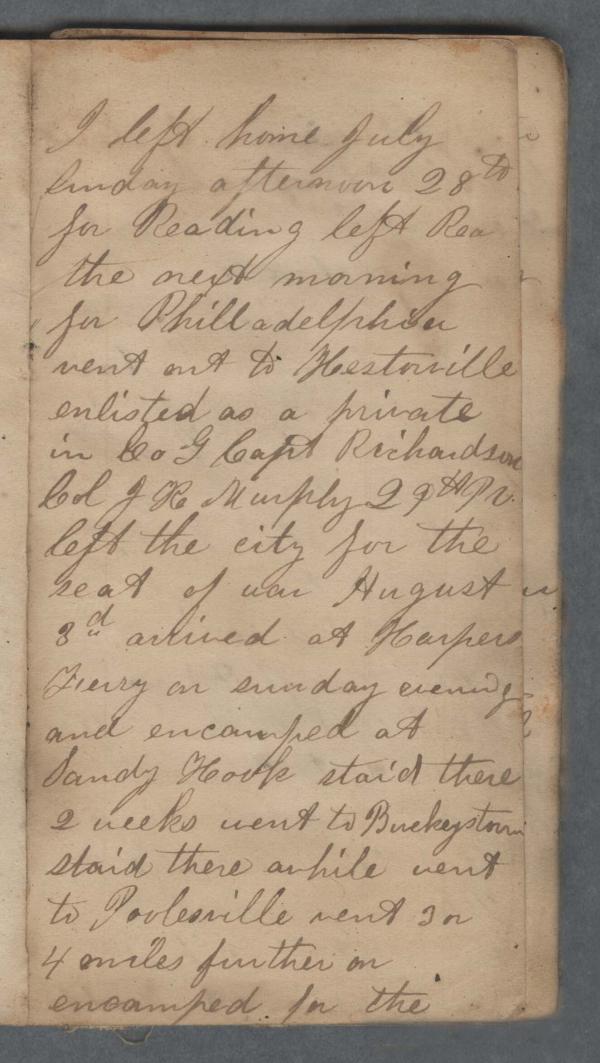 I left home July
sunday afternoon 28th
for Reading left Rea
the next morning
for Philladelphia
went out to Hestonville
enlisted as a private
in Co G Capt Richardson
Col J K Murphy 29th Pv.
left the city for the
seat of war August
3d arrived at Harpers
Ferry on sunday evening
and encamped at
Sandy Hook staid there
2 weeks went to Buckeystown
staid there awhile went
to Poolesville went 3 or
4 miles further on
encamped for the